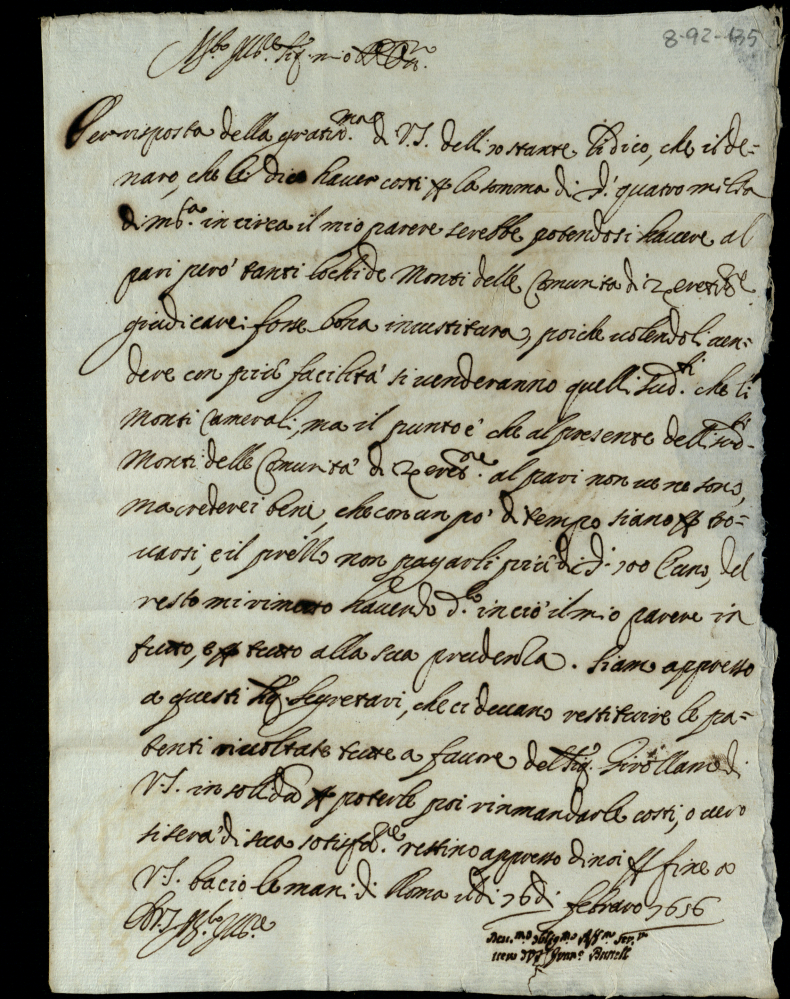 8-92-135
Per risposta della gratis.ma di V.S. dell' instante li dico, che il de=
naro, che li dico haver costi p la somma di d.i quatro milia
di m.ta in circa il mio parere serebbe potendosi havere al
pari però tanti lochi de Monti delle Comunita di
giudicarei forse bona investitura, poiche volendoli ven=
dere con più facilità si venderanno quelli sud.ti che li
Monti Camerali, ma il punto è che al presente delli sud.ti
Monti delle Comunità di al pari non ve ne sono,
ma crederei bene, che con un po' di tempo siano p tro=
varsi, e il prezzo non pagarli più di d.i 100 l'uno, del
resto mi rimetto havendo d.to in ciò il mio parere in
tutto, e p tutto alla sua prudenza. Siamo appresso
a questi Sig.ri Segretari, che ci devano restituire le pa=
tenti rivoltate tutte a favore del Sig. Girollamo di
V.S. in solidum p poterle poi rinmandarle costi, o vero
si serà di sua sotisfat.e restino appresso di noi p fine a
V.S. bacio le mani di Roma il di 16 di febraro 1616
Di V.S. M.to Ill.re
Ser.re